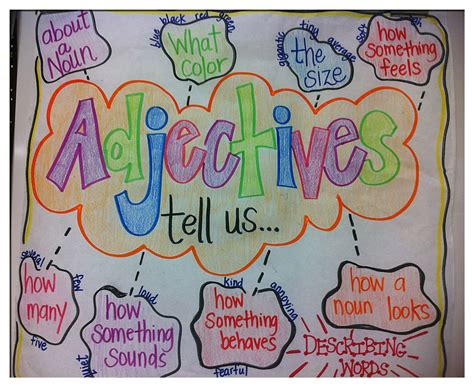 about
a
Noun
blue black red green
What
color
gigantic tiny average
the
size
soft
rough
how
something
feels
Adjectives
tell us...
several
how
many
five
loud
how
something
sounds
quiet
kind annoying
how
something
behaves
fearful
how a
noun looks
DESCRIBING
WORDS